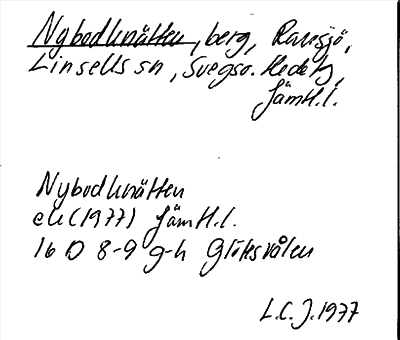 Nybodknätten, berg, Ransjö,
Linsells sn, Svegs o. Hede tg,
Jämtl.l.
Nybodknätten
ek (1977) Jämtl.l.
16 D 8-9 g-h Glötesvålen
L.C.J. 1977